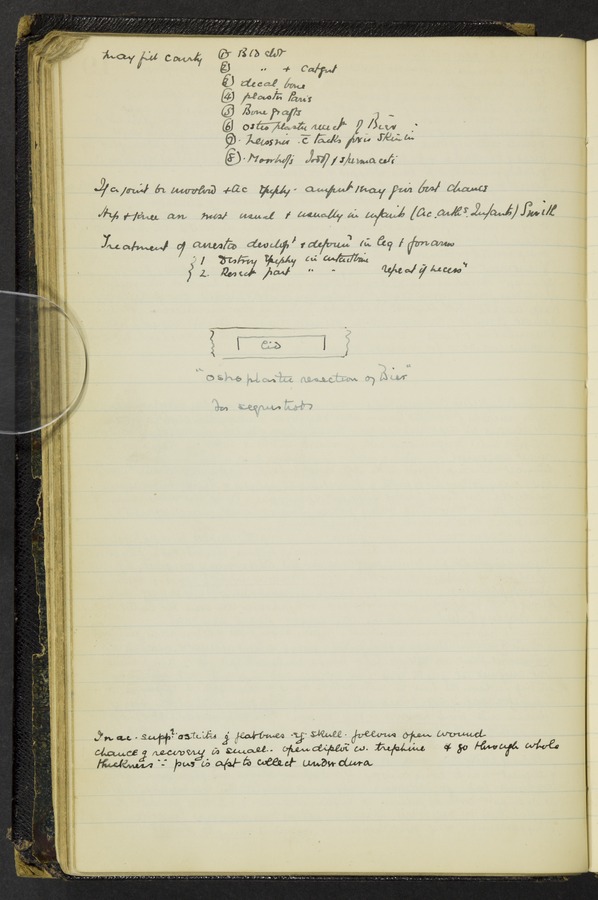 may fill cavity ① Bld clot
② " + catgut
③ decal bone
④ plaster Paris
⑤ Bone grafts
⑥ osteoplastic resect of Bier
⑦ c̄ tacks skin in
⑧ Moorhofs Iodof spermaceti
If a joint be involved + ac epiphy. amput may give best chance
Hip + knee are most usual + usually in infants (Ac. arths. Infants) Smith
Treatment of arrested develpt & deform in leg & forearm
1 Destroy epiphy in
2. Resect part " " repeat if necess
Lid
"Osteoplastic resection of Bier"
for
In ac. suppt osteitis of flat bones eg skull. follows open wound
chance of recovery is small. open diploë w. trephine & go through whole
thickness ∵ pus is apt to collect under dura